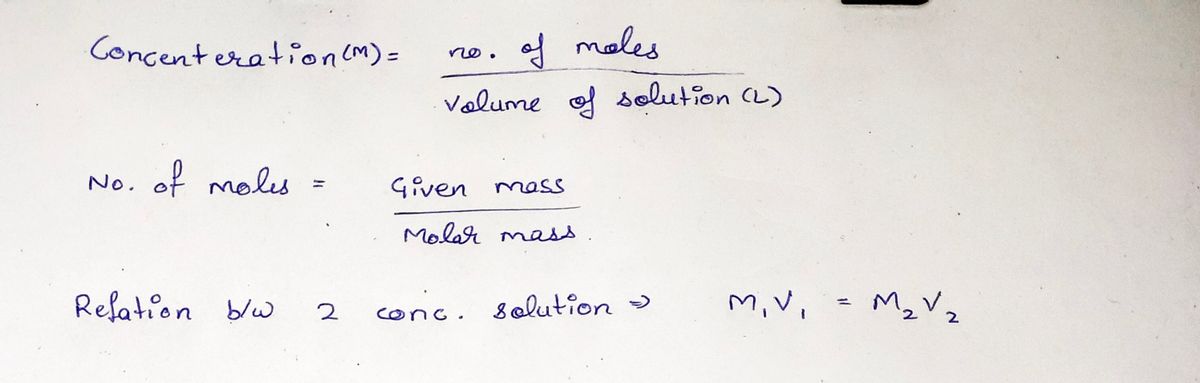 Concenteration (M) = no. of moles
Volume of solution (L)
No. of moles = Given mass
Molar mass.
Relation b/w 2 conc. solution ⇒ M₁V₁ = M₂V₂